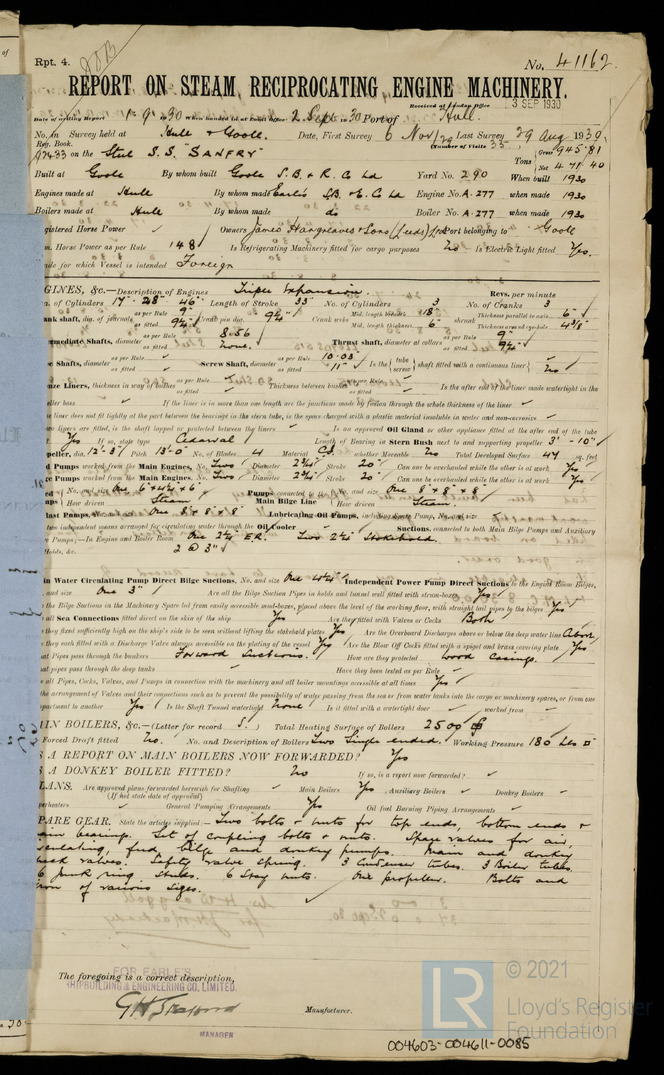 of
Rpt. 4.
No. 41162.
REPORT ON STEAM RECIPROCATING ENGINE MACHINERY.
Received at London Office 3 SEP 1930
Date of writing Report 1. 9. 1930 When handed in at Local Office 2 Sept 1930 Port of Hull.
No. in Survey held at Hull & Goole. Date, First Survey 6 Nov/29 Last Survey 29 Aug 1930
Reg. Book. (Number of Visits 35
on the Steel S.S. "SANFRY" Tons Gross 945.81 Net 471.40
Built at Goole By whom built Goole S.B. & R. Co Ld Yard No. 290 When built 1930
Engines made at Hull By whom made Earle's S.B. & E. Co Ld Engine No. A.277 when made 1930
Boilers made at Hull By whom made do Boiler No. A.277 when made 1930
gistered Horse Power Owners James Hargreaves & Sons (Leeds) Ltd Port belonging to Goole
m. Horse Power as per Rule 148 Is Refrigerating Machinery fitted for cargo purposes No Is Electric Light fitted Yes.
ade for which Vessel is intended Foreign
GINES, &c.—Description of Engines Triple Expansion. Revs. per minute
of Cylinders 17" 28" 46" Length of Stroke 33" No. of Cylinders 3 No. of Cranks 3
ank shaft, dia. of journals as per Rule 9" as fitted 9¼" Crank pin dia. 9¼" Crank webs Mid. length breadth 18" Mid. length thickness 6" shrunk Thickness parallel to axis 6" Thickness around eye-hole 4⅜"
ermediate Shafts, diameter as per Rule 8.56 as fitted none. Thrust shaft, diameter at collars as per Rule 9" as fitted 9¼"
e Shafts, diameter as per Rule as fitted Screw Shaft, diameter as per Rule 10.03 as fitted 11" Is the tube screw shaft fitted with a continuous liner No
nze Liners, thickness in way of bushes as per Rule as fitted Thickness between bushes as per Rule as fitted Is the after end of the liner made watertight in the
eller boss If the liner is in more than one length are the junctions made by fusion through the whole thickness of the liner
e liner does not fit tightly at the part between the bearings in the stern tube, is the space charged with a plastic material insoluble in water and non-corrosive
wo liners are fitted, is the shaft lapped or protected between the liners Is an approved Oil Gland or other appliance fitted at the after end of the tube
Yes If so, state type Cedervall Length of Bearing in Stern Bush next to and supporting propeller 3'-10"
peller, dia. 12'-3" Pitch 13'-0" No. of Blades 4 Material C.I. whether Moveable No Total Developed Surface 47 sq. feet
d Pumps worked from the Main Engines, No. Two Diameter Stroke 20" Can one be overhauled while the other is at work Yes
e Pumps worked from the Main Engines, No. Two Diameter Stroke 20" Can one be overhauled while the other is at work Yes
How driven Steam Pumps connected to the Main Bilge Line No. and size One 8" x 8" x 8" How driven Steam.
last Pumps One 8" x 8" x 8" Lubricating Oil Pumps, including Spare Pump, No. and size
two independent means arranged for circulating water through the Oil Cooler Suctions, connected to both Main Bilge Pumps and Auxiliary
e Pumps;—In Engine and Boiler Room One 2¼" E.R. Two 2¼" Stokehold.
Holds, &c. 2 @ 3"
in Water Circulating Pump Direct Bilge Suctions, No. and size One 4¼" Independent Power Pump Direct Suctions to the Engine Room Bilges,
and size One 3" Are all the Bilge Suction Pipes in holds and tunnel well fitted with strum-boxes Yes
the Bilge Suctions in the Machinery Space led from easily accessible mud-boxes, placed above the level of the working floor, with straight tail pipes to the bilges Yes
all Sea Connections fitted direct on the skin of the ship Yes Are they fitted with Valves or Cocks Both
they fixed sufficiently high on the ship's side to be seen without lifting the stokehold plates Yes Are the Overboard Discharges above or below the deep water line Above
they each fitted with a Discharge Valve always accessible on the plating of the vessel Yes Are the Blow Off Cocks fitted with a spigot and brass covering plate Yes
at Pipes pass through the bunkers Forward Suctions. How are they protected Wood Casings.
at pipes pass through the deep tanks Have they been tested as per Rule
all Pipes, Cocks, Valves, and Pumps in connection with the machinery and all boiler mountings accessible at all times Yes
the arrangement of Valves and their connections such as to prevent the possibility of water passing from the sea or from water tanks into the cargo or machinery spaces, or from one
partment to another Yes Is the Shaft Tunnel watertight None Is it fitted with a watertight door worked from
IN BOILERS, &c.—(Letter for record S.) Total Heating Surface of Boilers 2500
Forced Draft fitted No. No. and Description of Boilers Two Single ended. Working Pressure 180 Lbs
S A REPORT ON MAIN BOILERS NOW FORWARDED? Yes
S A DONKEY BOILER FITTED? No If so, is a report now forwarded?
LANS. Are approved plans forwarded herewith for Shafting Main Boilers Yes, Auxiliary Boilers Donkey Boilers
(If not state date of approval)
perheaters General Pumping Arrangements Yes Oil fuel Burning Piping Arrangements
PARE GEAR. State the articles supplied:— Two bolts & nuts for top ends, bottom ends &
ain bearings. Set of coupling bolts & nuts. Spare valves for air,
culating, feed, bilge and donkey pumps. Main and donkey
heck valves. Safety valve spring. 3 Condenser tubes. 3 Boiler tubes.
6 Junk ring studs. 6 Stay nuts. One propeller. Bolts and
iron of various sizes.
The foregoing is a correct description,
FOR EARLE'S
SHIPBUILDING & ENGINEERING CO., LIMITED.
Manufacturer.
MANAGER
LR
© 2021
Lloyd's Register
Foundation
004603-004611-0085